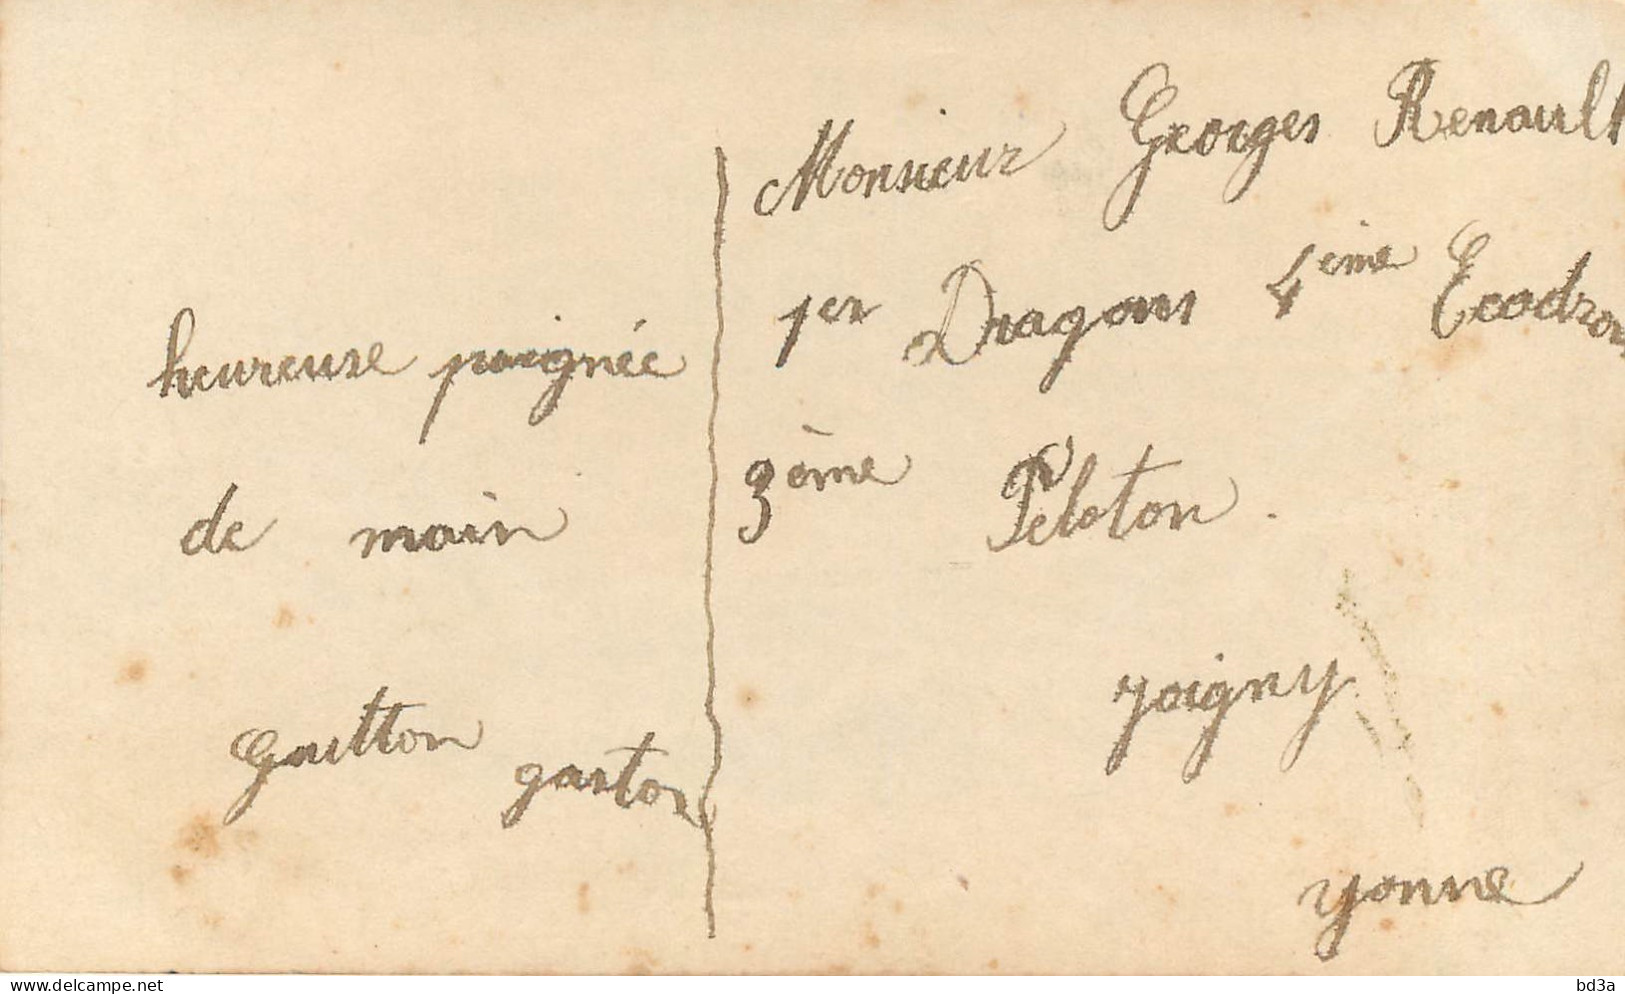 heureuse poignée
de main
Gaitton gaston
Monsieur Georges Renault
1er Dragons 4ème Ecadron
3ème Peloton.
Joigny
yonne
www.delcampe.net
bd3a